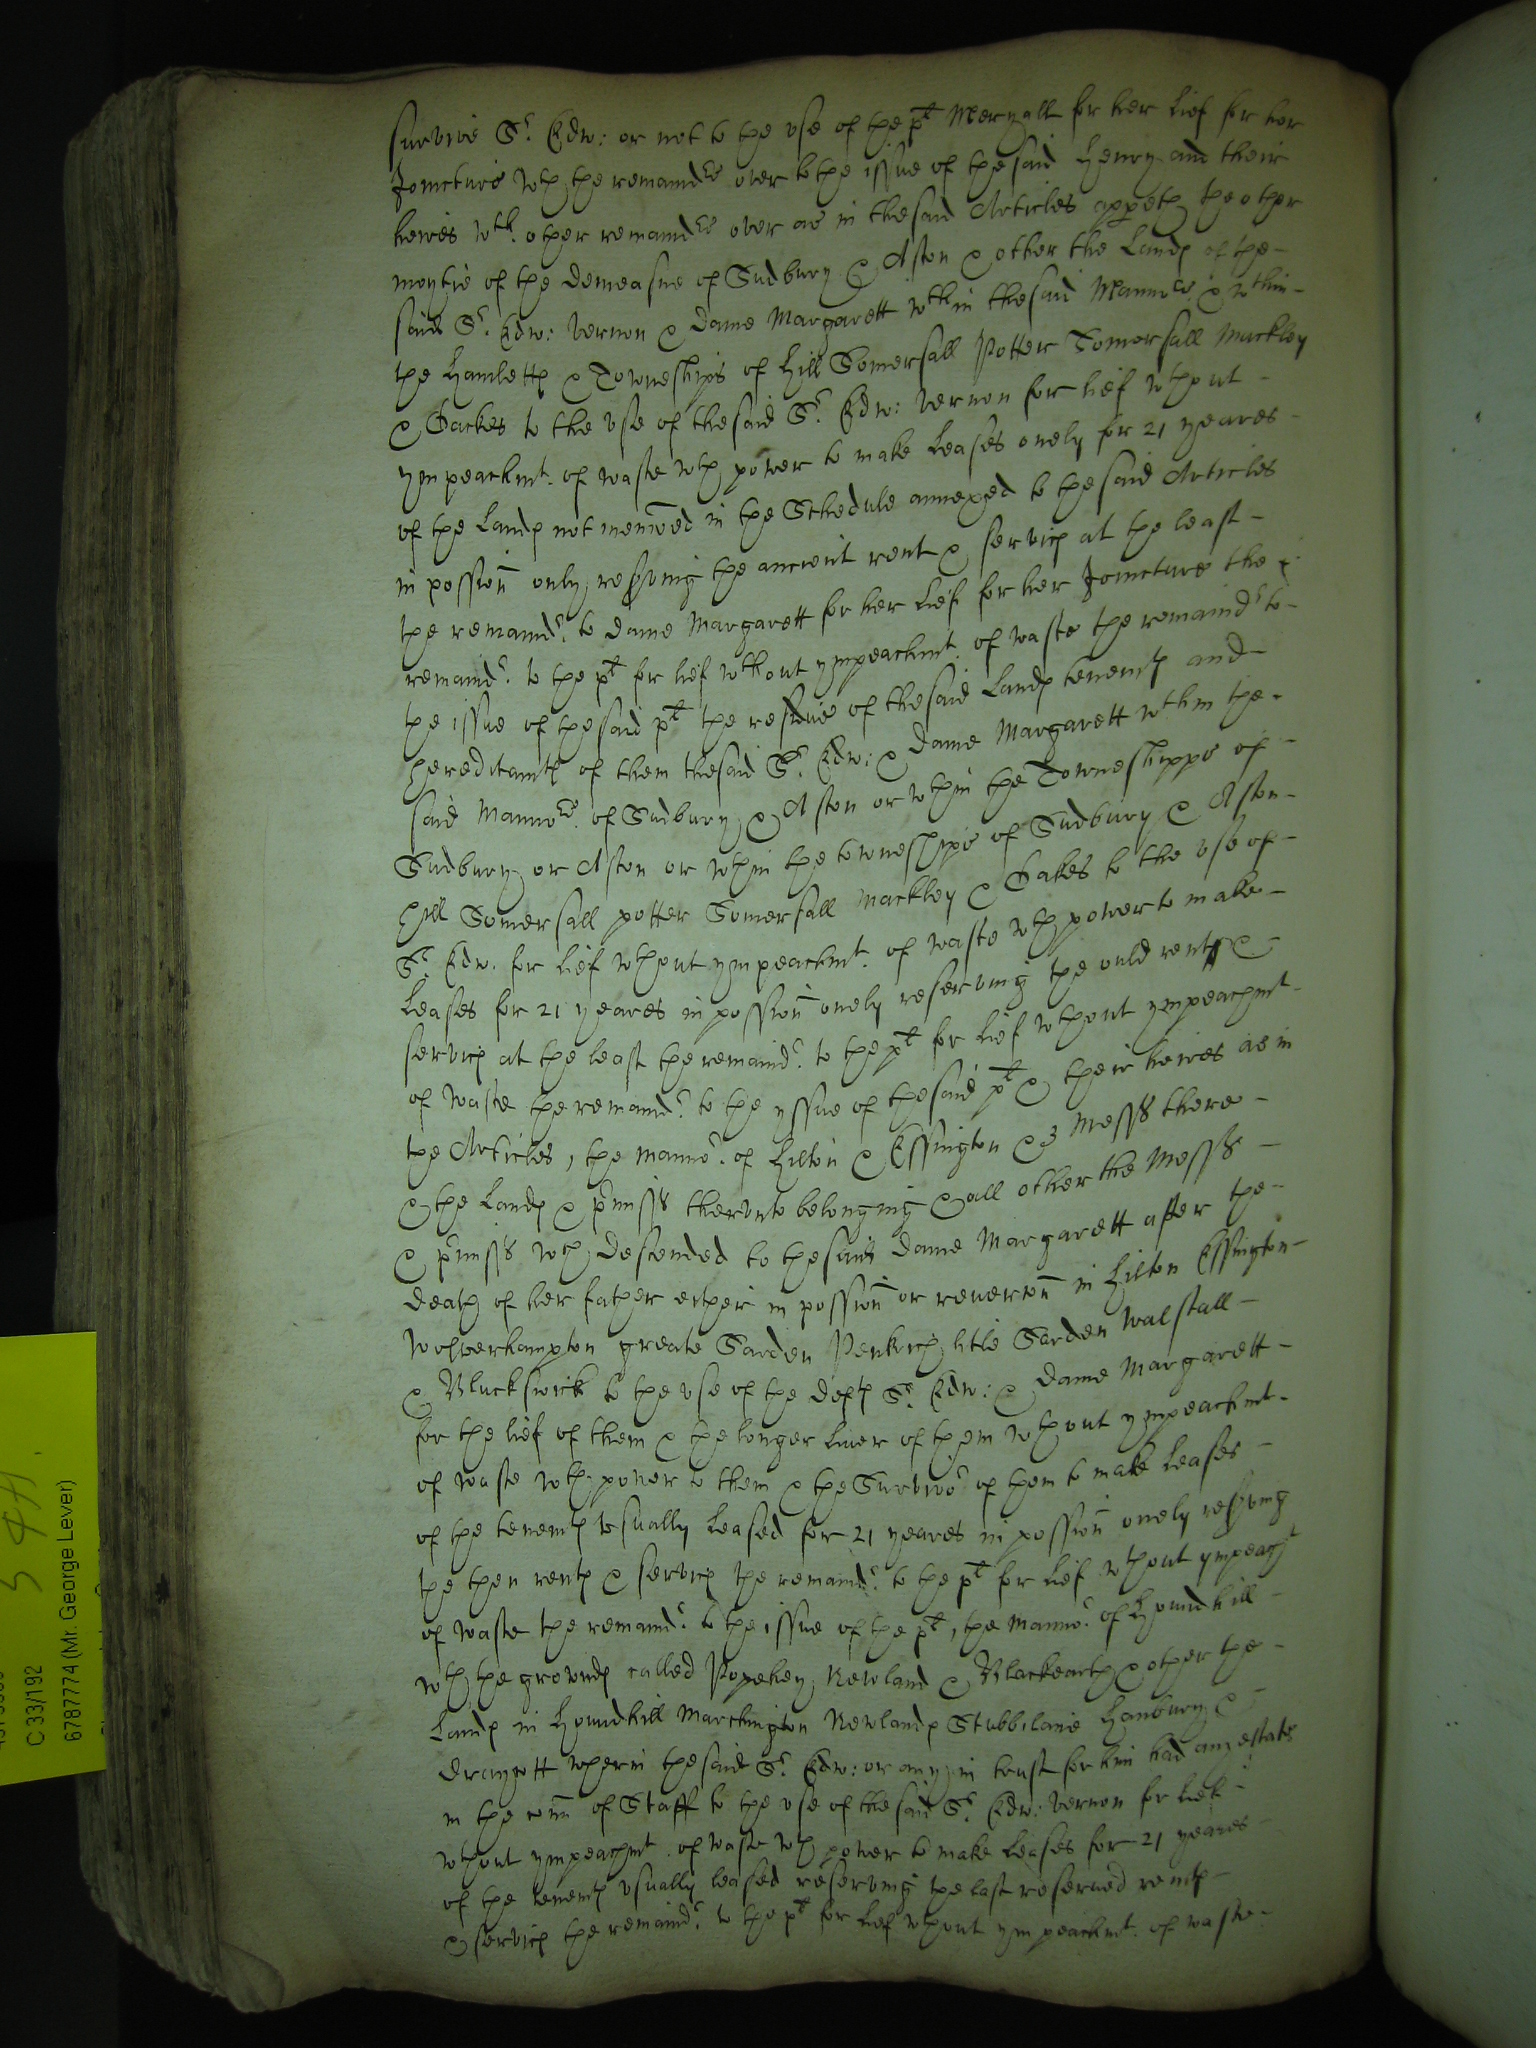 survive Sr. Edw: or not to the vse of the plt Meryall for her lief for her
Joincture wth the remaindrs over to the issue of the said Henry and their
heires wth. other remaindrs over as in the said Articles appeth the other
moytie of the demeasne of Sudbury & Aston & other the Lands of the
said Sr. Edw: Vernon & dame Margarett wthin the said Mannors & wthin
the Hamletts & Towneships of Hill Somersall Potter Somersall Mackley
& Oackes to the vse of the said Sr. Edw: Vernon for lief wthout
ympeachmt. of waste wth power to make Leases onely for 21 yeares
of the Lands not menc̄oed in the Schedule annexed to the said Articles
in possion only resving the ancient rent & services at the least
the remaindr. to dame Margarett for her lief for her Joincture the
remaindr. to the plt for lief wthout ympeachmt. of waste the remaindr to
the issue of the said plt the residue of the said Lands tenemts and
hereditamts of them the said Sr. Edw: & dame Margarett wthin the
said Mannors. of Sudbury & Aston or wthin the Towneshipps of
Sudbury or Aston or wthin the towneships of Sudbury & Aston
Hill Somersall potter Somersall Mackley & Oakes to the vse of
Sr. Edw. for lief wthout ympeachmt. of waste wth power to make
Leases for 21 yeares in possion onely reserving the ould rents &
services at the least the remaindr. to the plt for lief wthout ympeachmt
of waste the remaindr. to the yssue of the said plt & their heires as in
the Articles, the mannor. of Hilton & Essington & 3 Mess's there
& the Lands & p̄miss's therunto belonging & all other the Mess's
& p̄miss's wch descended to the said dame Margarett after the
death of her father either in possion or revercōn in Hilton Essington
Wolverhampton greate Sarden Penkrich litle Sarden Walstall
& Bluckswick to the vse of the defts Sr. Edw: & dame Margarett
for the lief of them & the longer liver of them wthout ympeachmt.
of waste wth power to them & the Survivor of them to make Leases
of the tenemts vsually Leased for 21 yeares in possion onely resving
the then rents & services the remaindr. to the plt for lief wthout ympeacht
of waste the remaindr. to the issue of the plt, the mannor. of Houndhill
wth the grounds called Popehey Newland & Blackearth & other the
Lands in Houndhill Marchington Newlands Stubbilane Hanbury &
Draycott wherin the said Sr. Edw: or any in trust for him had any estate
in the com̄ of Staff to the vse of the said Sr. Edw: Vernon for lief
wthout ympeachmt. of waste wth power to make Leases for 21 yeares
of the tenemts vsually leased reserving the last reserved rents
& services the remaindr. to the plt for lief wthout ympeachmt. of waste
C 33/192
6787774 (Mr. George Lever)